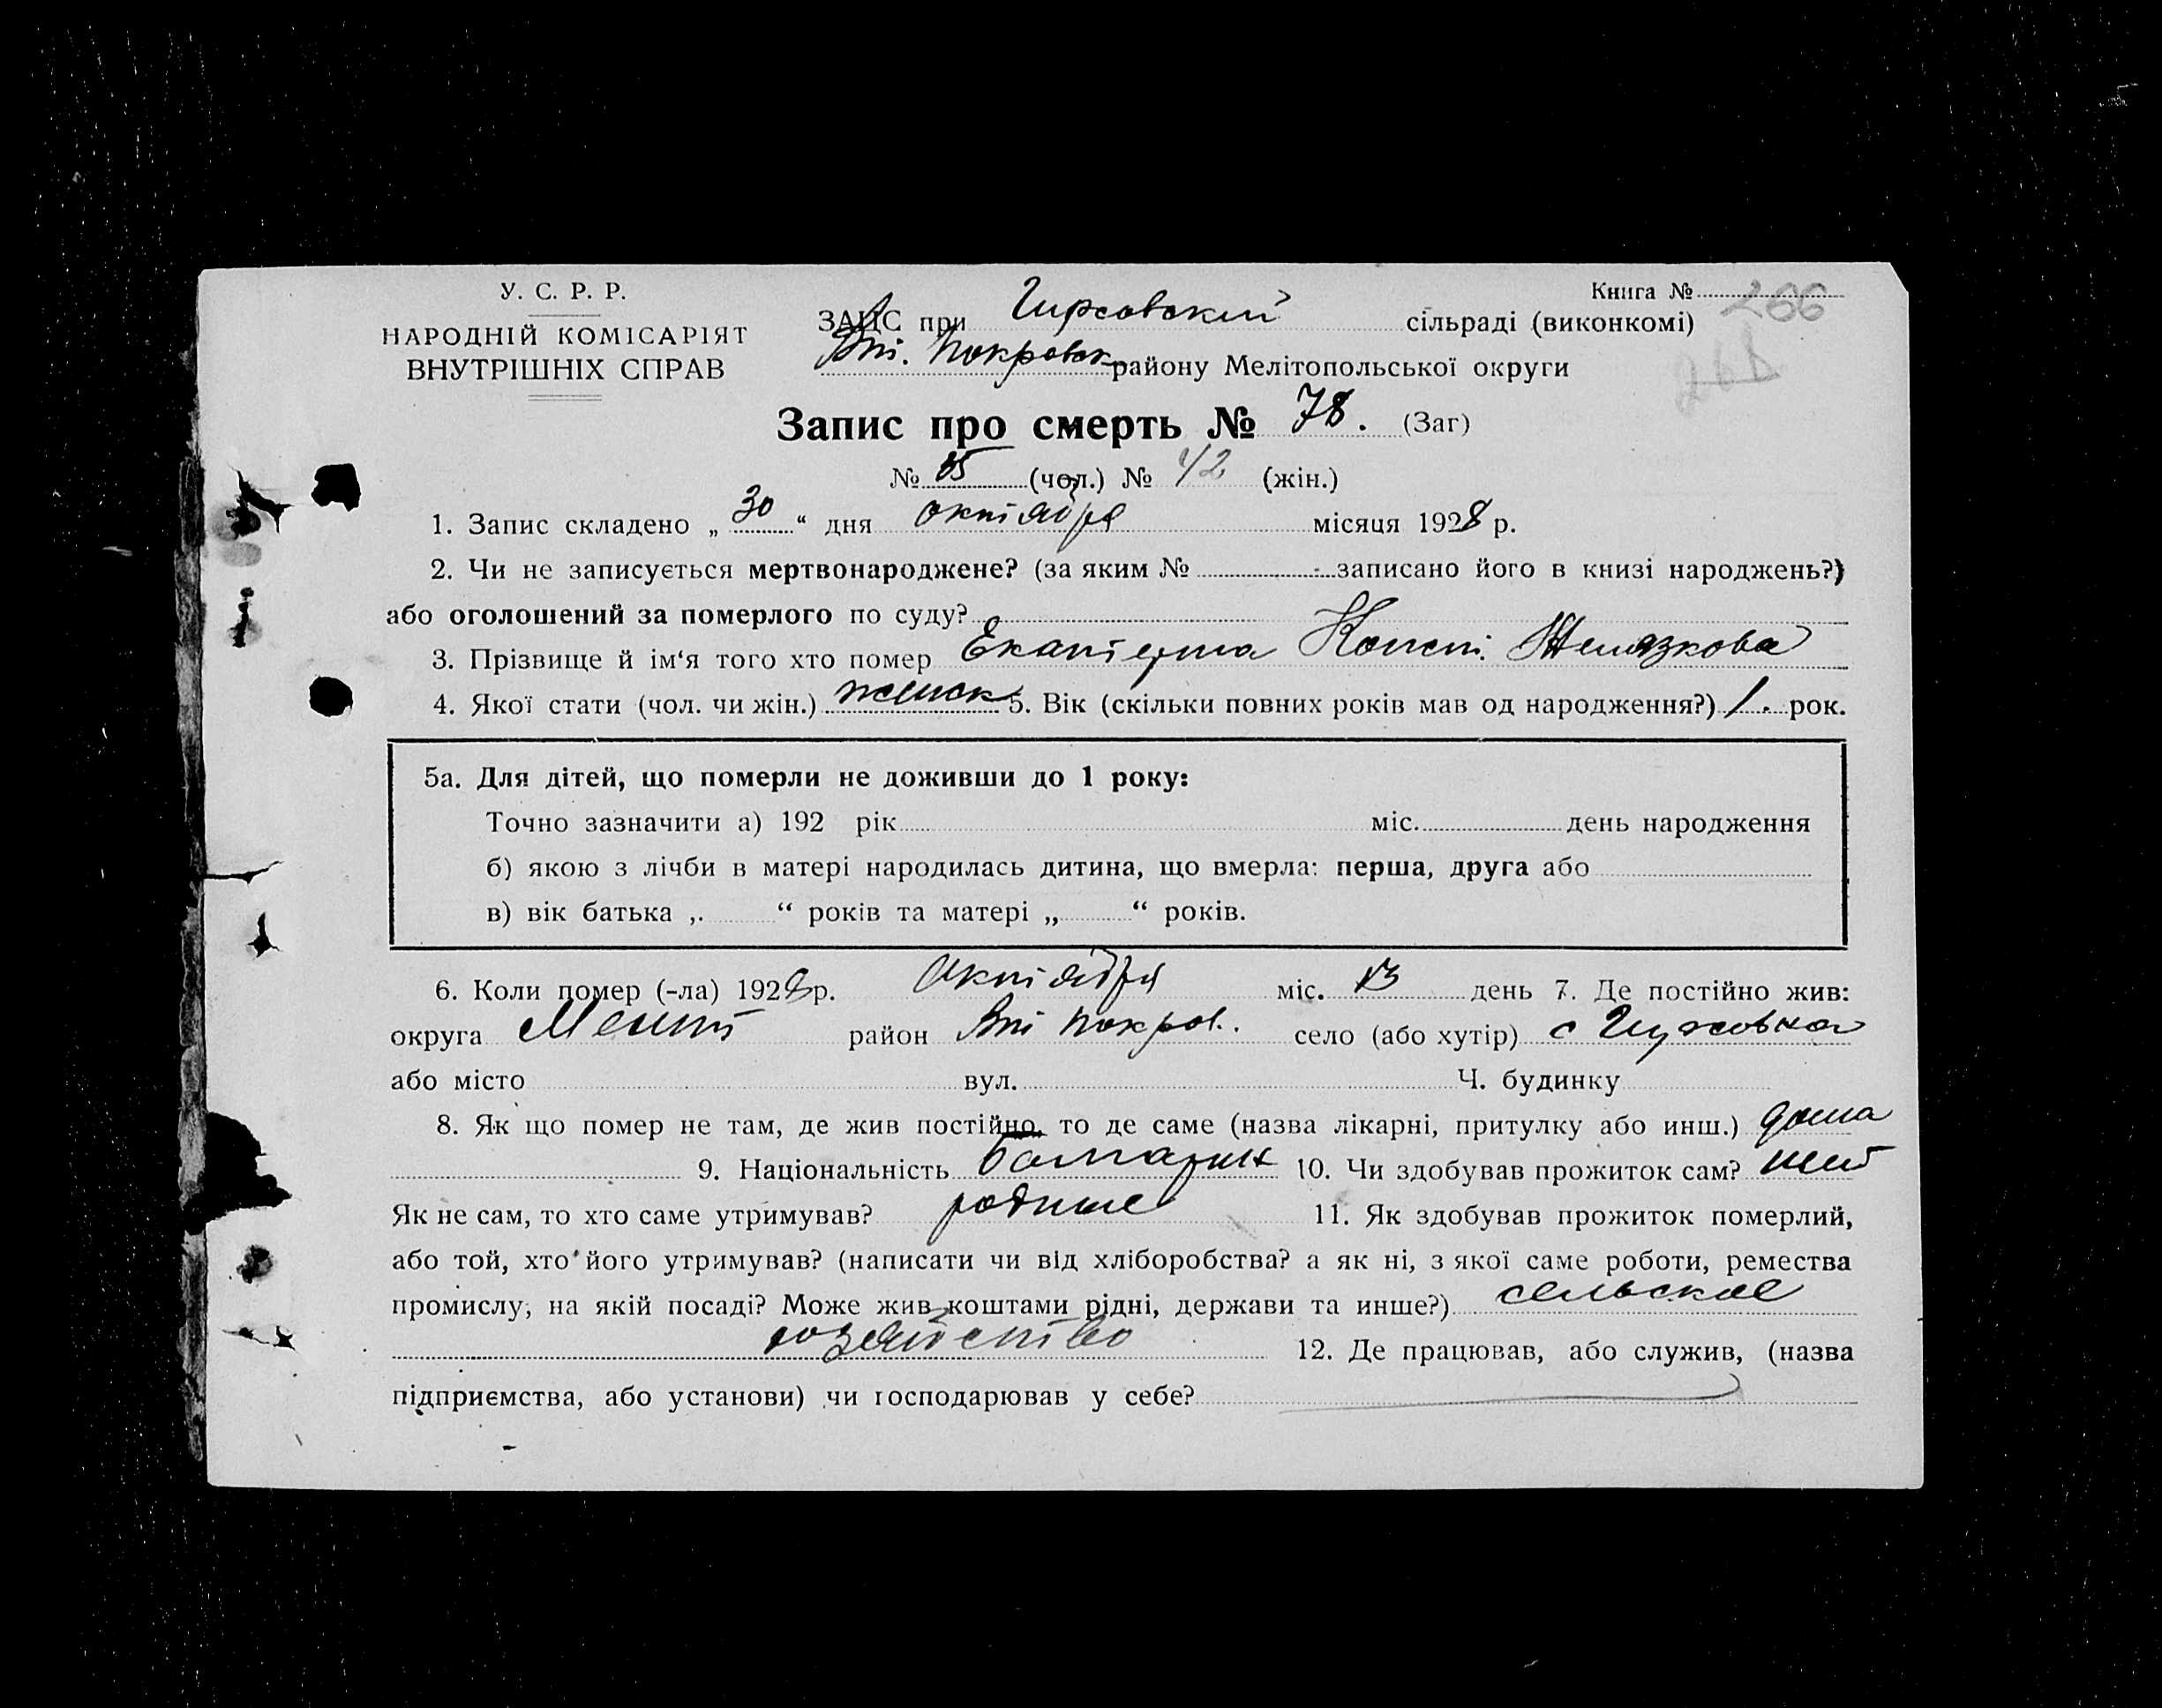 У. С. Р. Р.
НАРОДНІЙ КОМІСАРІЯТ
ВНУТРІШНІХ СПРАВ
Книга № 266
268
ЗАЦС при Гирсовский сільраді (виконкомі)
Вт. Покровск району Мелітопольської округи
Запис про смерть № 78. (Заг)
№ (чол.) № 42 (жін.)
1. Запис складено „ 30 “ дня октября місяця 1928 р.
2. Чи не записується мертвонароджене? (за яким № записано його в книзі народжень?)
або оголошений за померлого по суду?
3. Прізвище й ім‘я того хто помер Екатерина Конст. Желязкова
4. Якої стати (чол. чи жін.) женск 5. Вік (скільки повних років мав од народження?) 1. рок.
5а. Для дітей, що померли не доживши до 1 року:
Точно зазначити а) 192 рік міс. день народження
б) якою з лічби в матері народилась дитина, що вмерла: перша, друга або
в) вік батька „ “ років та матері „ “ років.
6. Коли помер (-ла) 1928 р. октября міс. 13 день 7. Де постійно жив:
округа Мелит район Вт Покров. село (або хутір) с Гирсовка
або місто вул. Ч. будинку
8. Як що помер не там, де жив постійно, то де саме (назва лікарні, притулку або инш.) дома
9. Національність болгарк 10. Чи здобував прожиток сам? нет
Як не сам, то хто саме утримував? родные 11. Як здобував прожиток померлий,
або той, хто його утримував? (написати чи від хліборобства? а як ні, з якої саме роботи, ремества
промислу, на якій посаді? Може жив коштами рідні, держави та инше?) сельское
хозяйство 12. Де працював, або служив, (назва
підприємства, або установи) чи господарював у себе?